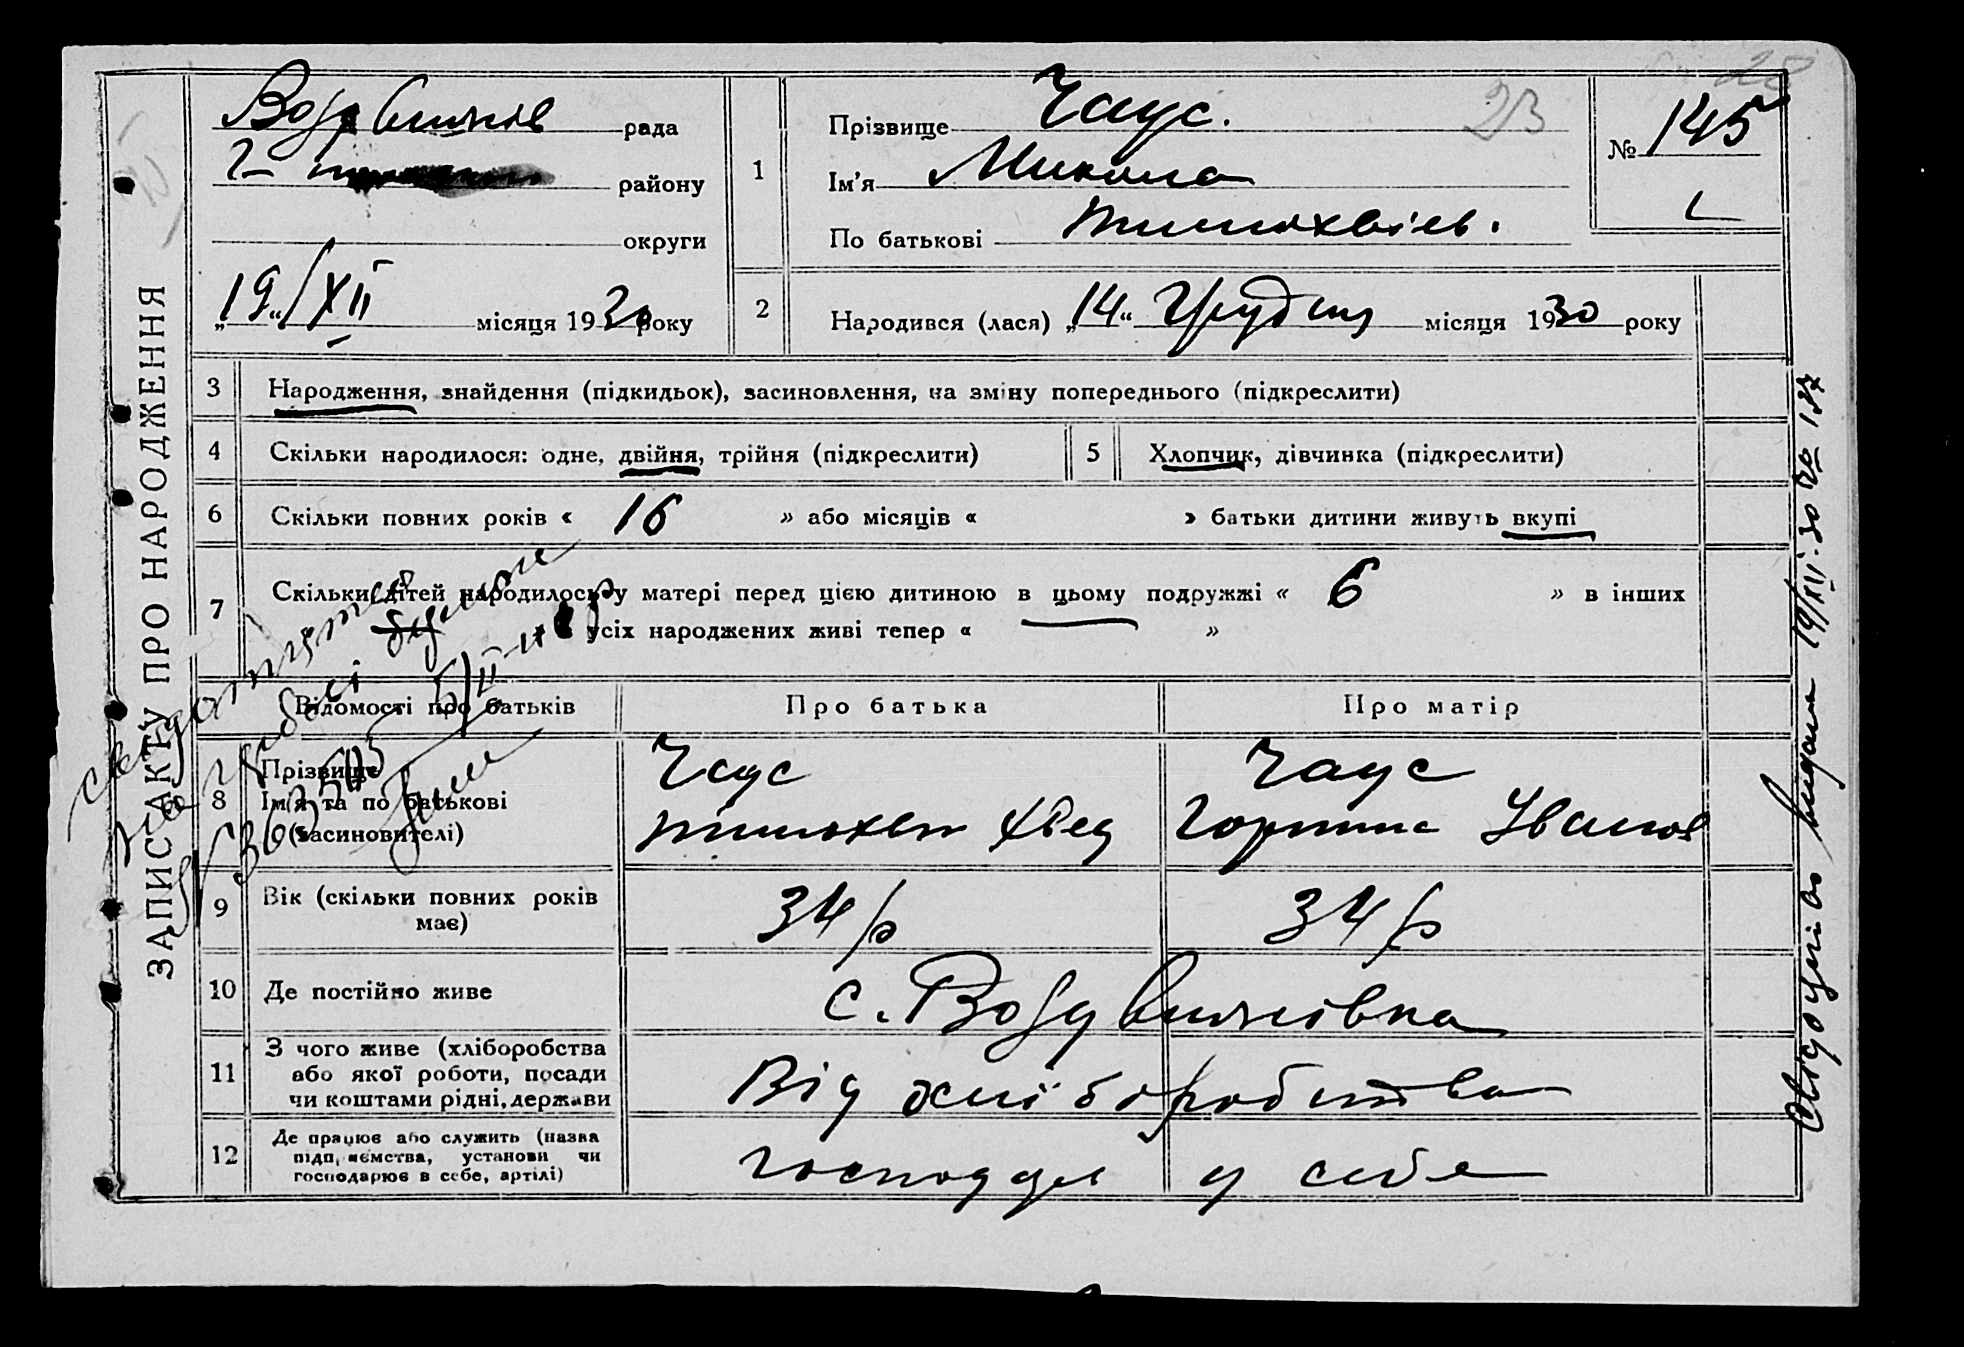 28
ЗАПИС АКТУ ПРО НАРОДЖЕННЯ
Воздвижнів рада
району
округи
„19“/XII місяця 1930 року
1
Прізвище Чаус.
23
Ім'я Микола
По батькові Тимохвієв.
№ 145
2
Народився (лася) „14“ Грудня місяця 1930 року
3 Народження, знайдення (підкидьок), засиновлення, на зміну попереднього (підкреслити)
4 Скільки народилося: одне, двійня, трійня (підкреслити)
5 Хлопчик, дівчинка (підкреслити)
6 Скільки повних років « 16 » або місяців « » батьки дитини живуть вкупі
7 Скільки дітей народилось у матері перед цією дитиною в цьому подружжі « 6 » в інших
усіх народжених живі тепер « »
Відомості про батьків Про батька Про матір
8 Прізвище
Ім'я та по батькові
(засиновителі)
Чаус
Тимохвій Хвед
Чаус
Горпина Іванов
9 Вік (скільки повних років
має)
34 р 34 р
10 Де постійно живе с. Воздвижнівка
11 З чого живе (хліборобства
або якої роботи, посади
чи коштами рідні, держави
Від хліборобства
12 Де працює або служить (назва
підприємства, установи чи
господарює в себе, артілі)
господар у себе
видано 19/XII-30